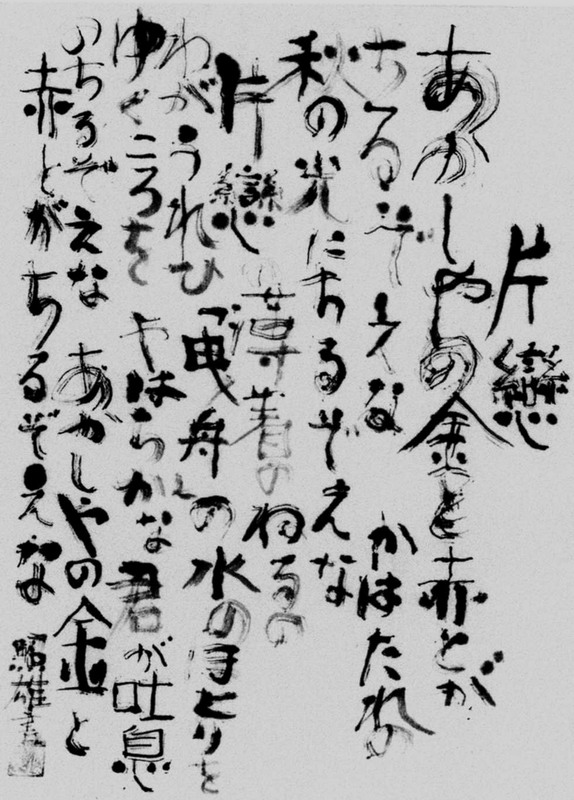 片戀
あかしやの金と赤とが
ちるぞえな　かはたれの
秋の光にちるぞえな
片戀の薄着のねるの
わがうれひ　「曳舟の水のほとりを
ゆくころを　やはらかな君が吐息
のちるぞえな　あかしやの金と
赤とがちるぞえな